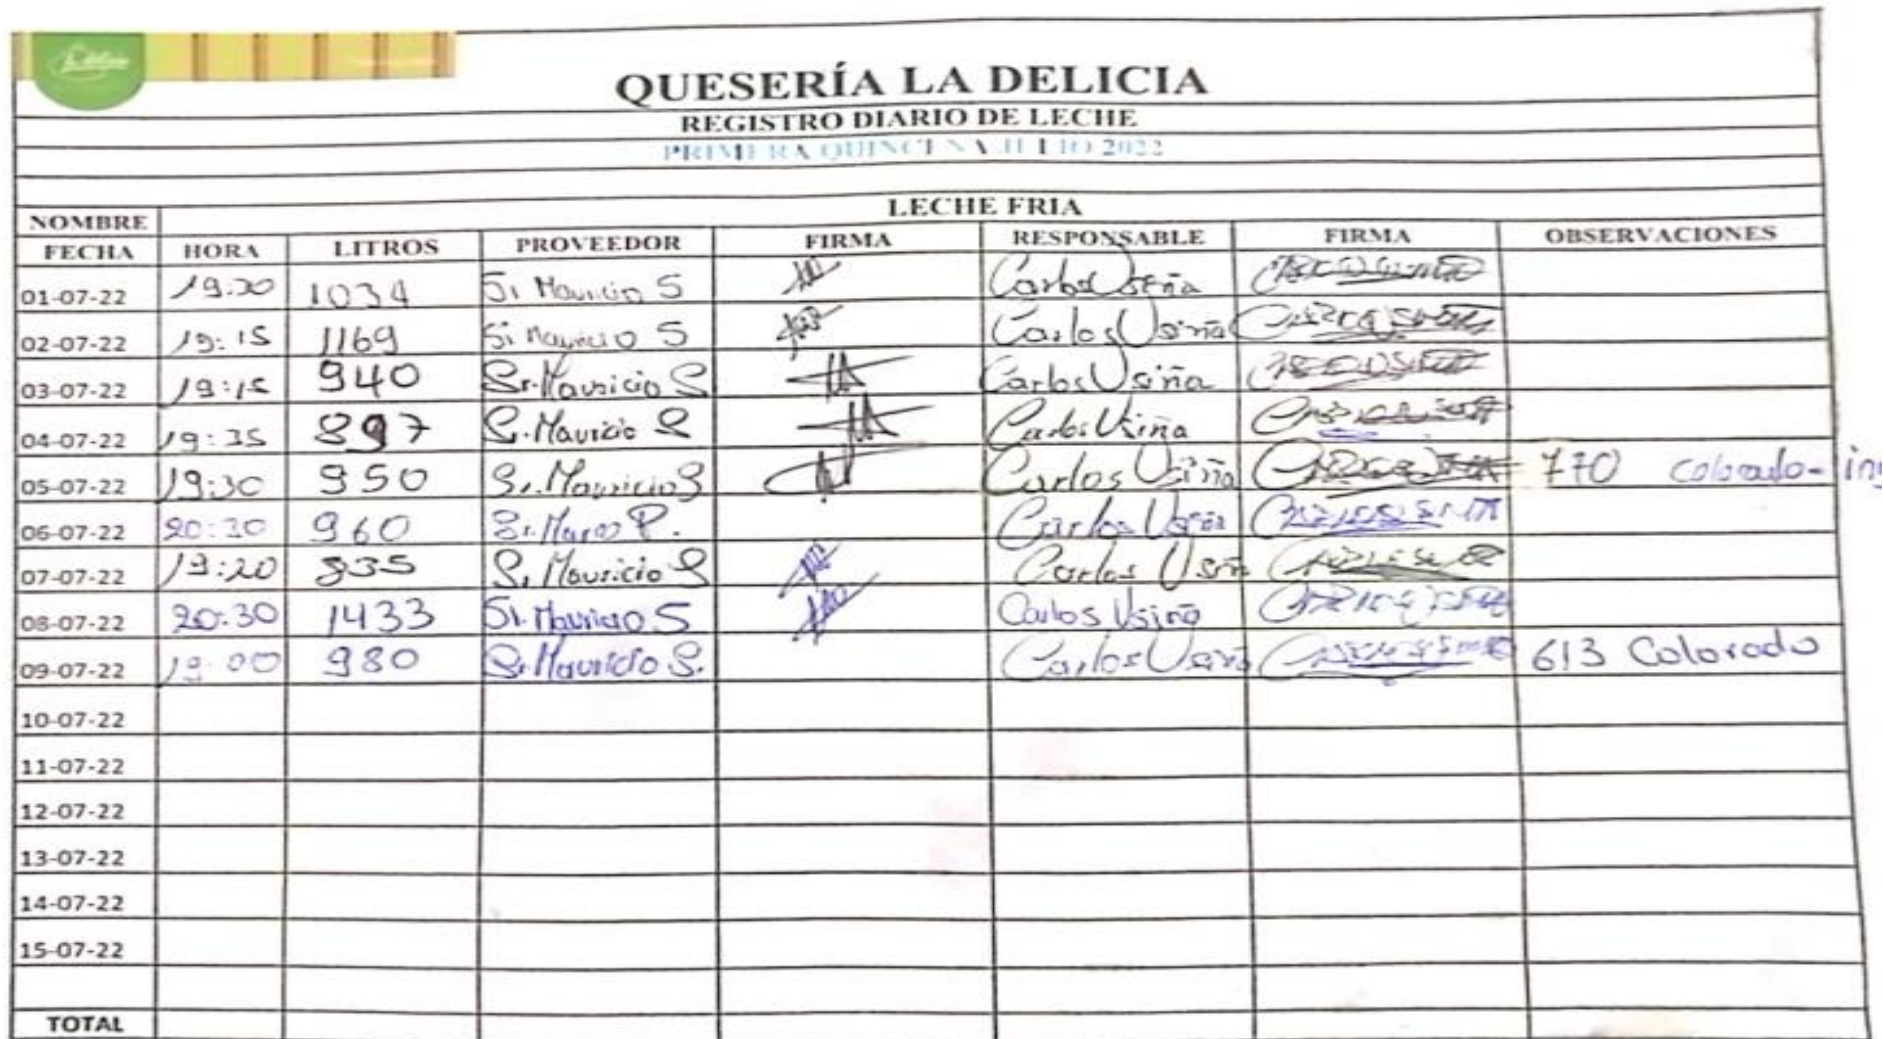 La delicia
QUESERÍA LA DELICIA
REGISTRO DIARIO DE LECHE
PRIMERA QUINCENA JULIO 2022
NOMBRE LECHE FRIA
FECHA HORA LITROS PROVEEDOR FIRMA RESPONSABLE FIRMA OBSERVACIONES
01-07-22 19:30 1034 Sr Mauricio S Carlos Usiña
02-07-22 19:15 1169 Sr Mauricio S Carlos Usiña
03-07-22 19:15 940 Sr. Mauricio S Carlos Usiña
04-07-22 19:35 897 Sr. Mauricio S Carlos Usiña
05-07-22 19:30 950 Sr. Mauricio S Carlos Usiña 770 colorado-
06-07-22 20:30 960 Sr. Marco P. Carlos Usiña
07-07-22 19:20 835 Sr. Mauricio S Carlos Usiña
08-07-22 20:30 1433 Sr. Mauricio S Carlos Usiña
09-07-22 19:00 980 Sr. Mauricio S. Carlos Usiña 613 Colorado
10-07-22
11-07-22
12-07-22
13-07-22
14-07-22
15-07-22
TOTAL